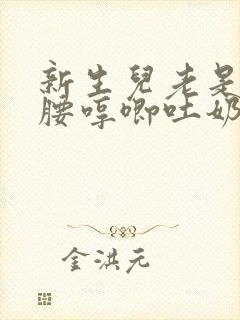 新生兒老是
腰哼唧吐奶
金洪元